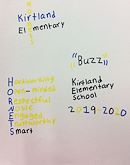 Kirtland
Elementary
"Buzz"
Kirtland
Elementary
School
2019-2020
Hardworking
Open-minded
Respectful
Noble
Engaged
Trustworthy
Smart